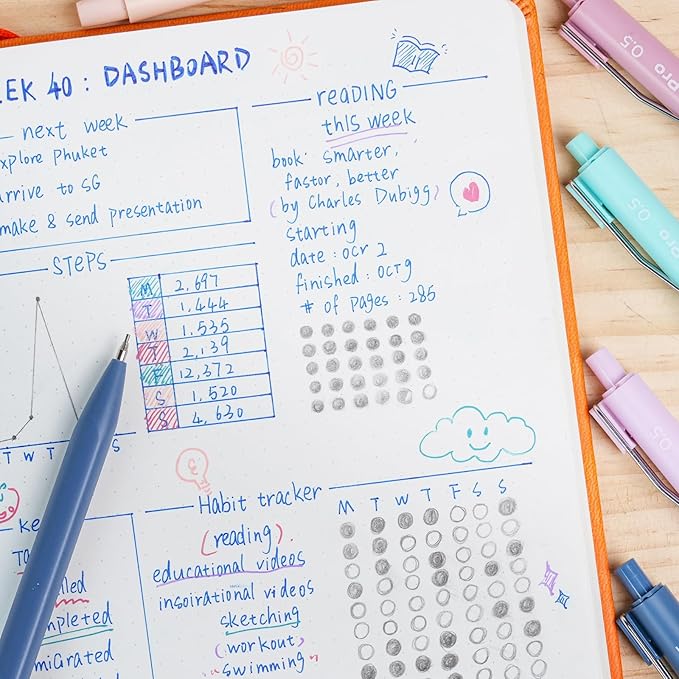 EEK 40 : DASHBOARD
next week
explore Phuket
arrive to SG
make & send presentation
STEPS
M 2,697
T 1,444
W 1,535
T 2,139
F 12,372
S 1,520
S 4,630
T W T S
reaDING
this week
book: smarter,
fastor, better
(by Charles Dubigg)
starting
date : ocr 2
finished : octg
# of pages : 285
Habit tracker
M T W T F S S
(reading).
educational videos
insoirational videos
sketching
(workout)
"swimming"
Ke
Ta
lled
mpleted
migrated
Pro 0.5
Pro 0.5
0.5
Pro 0.5